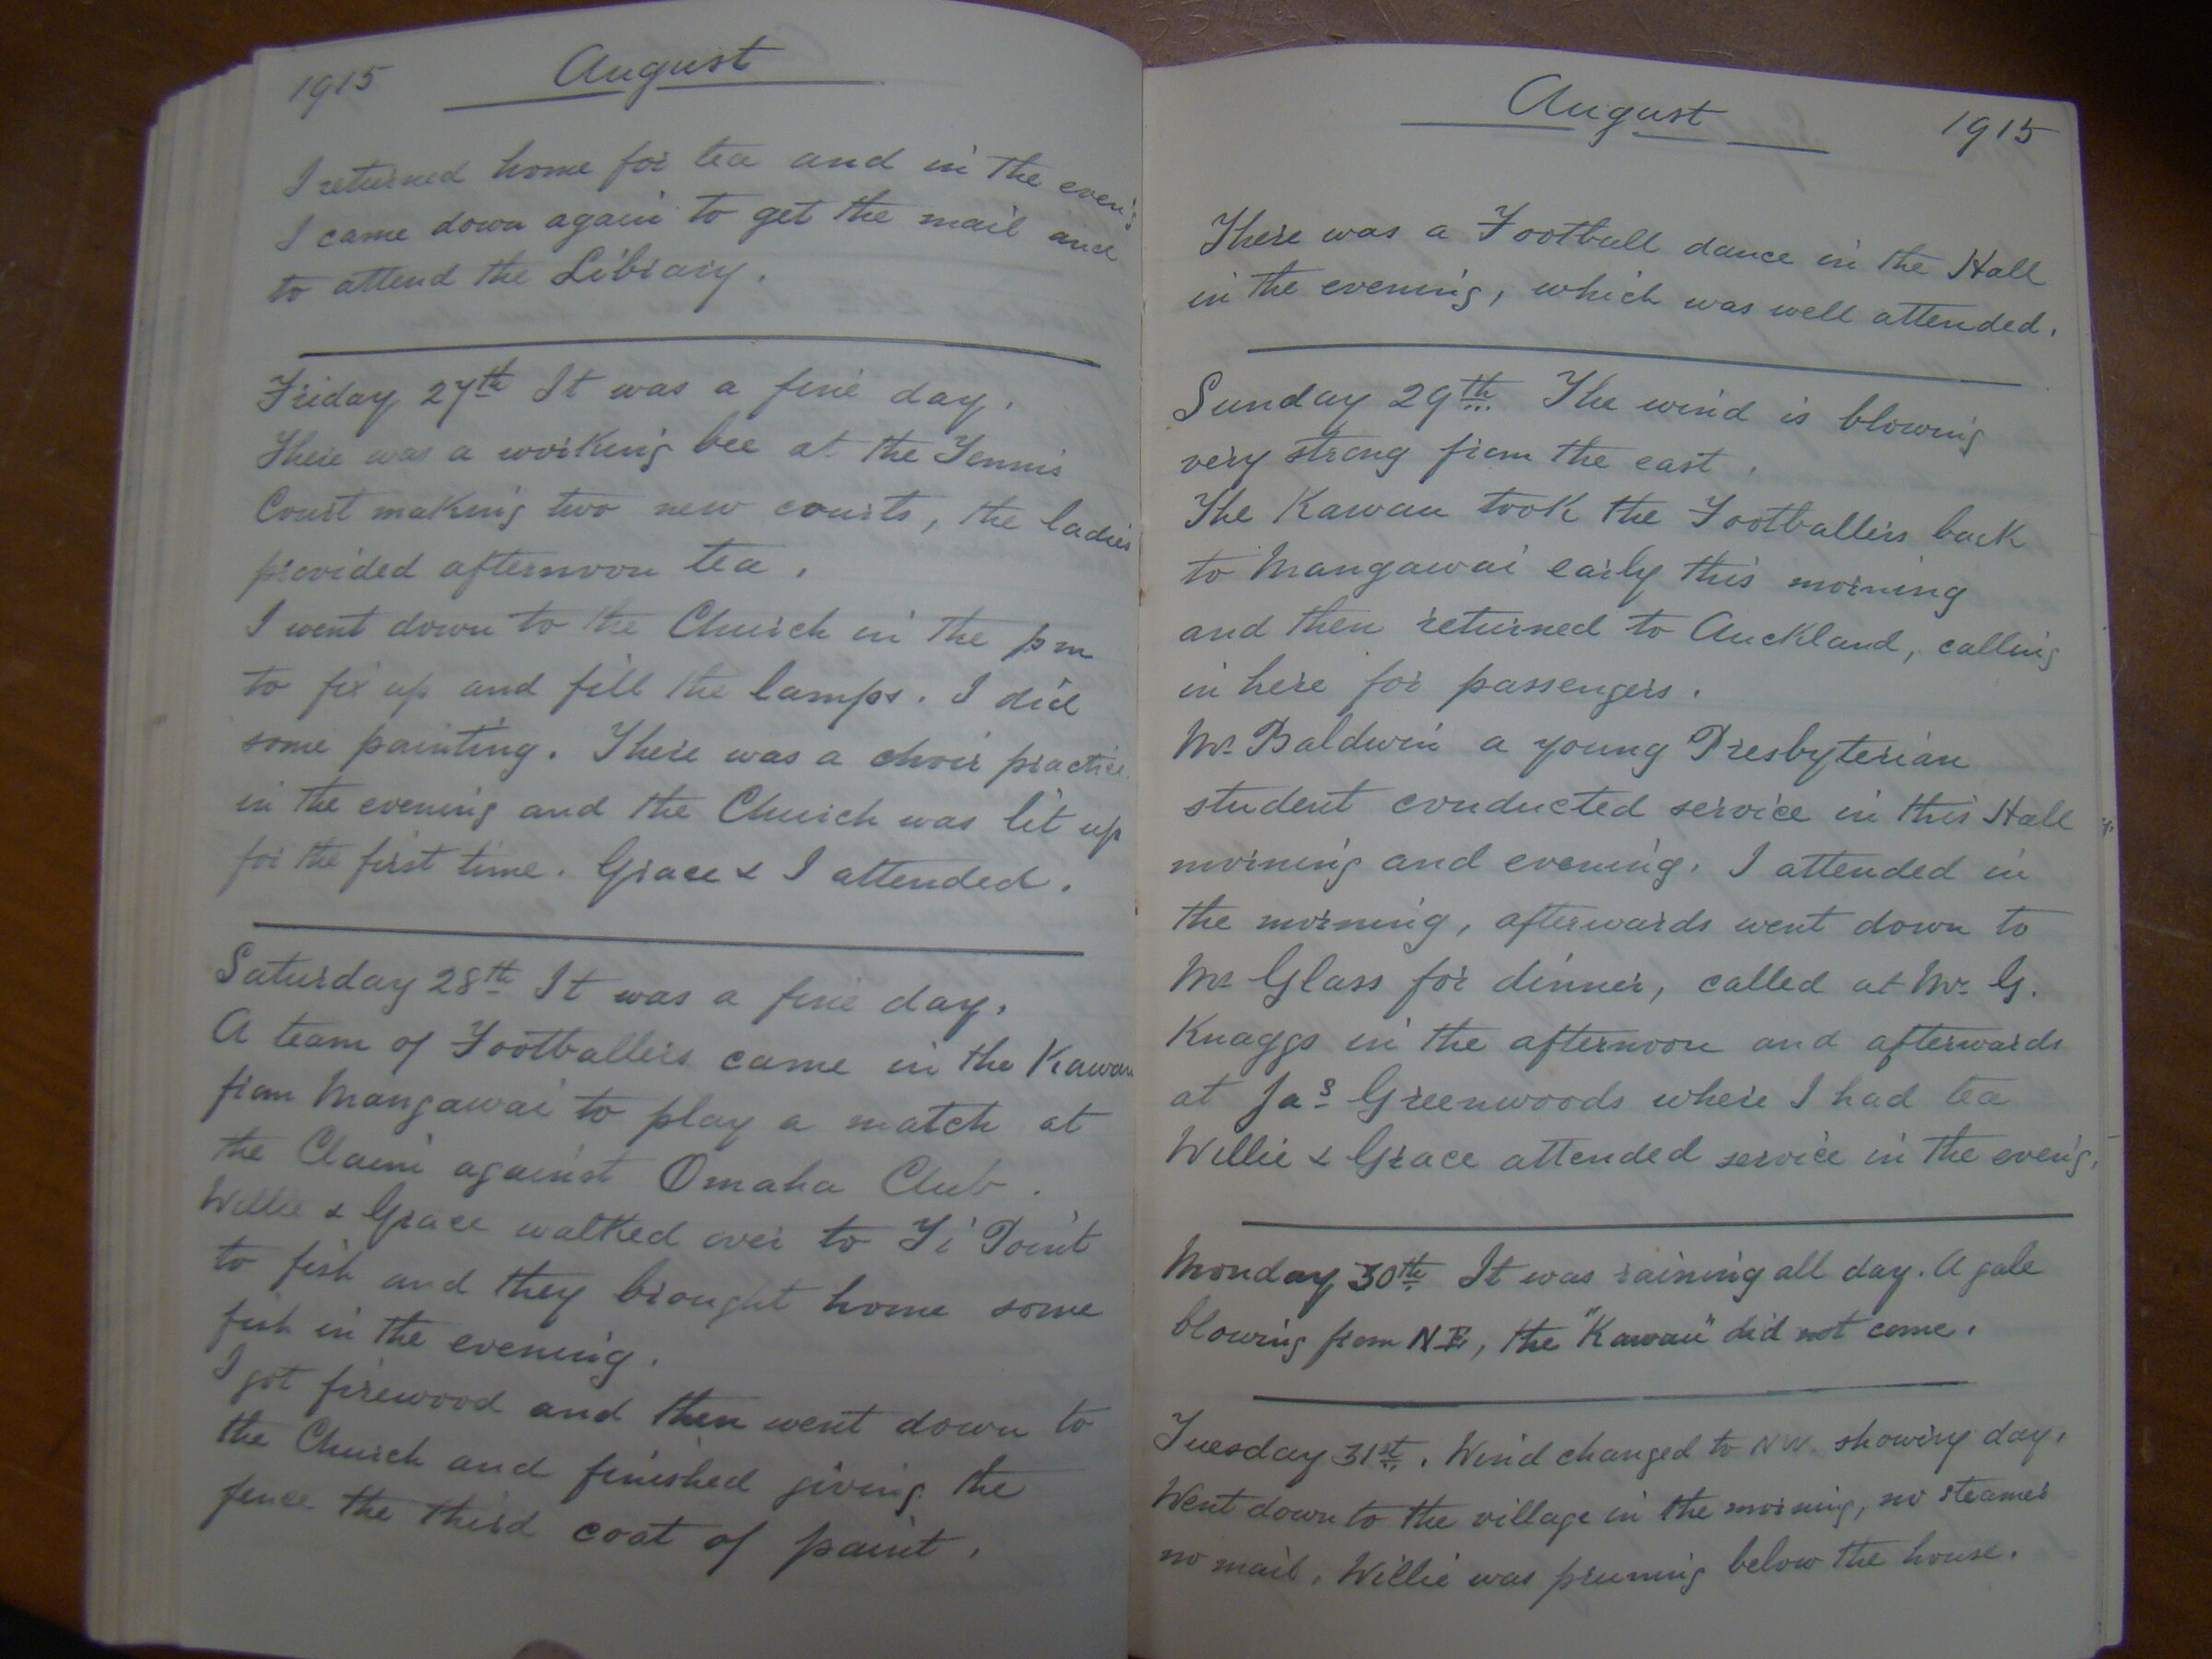 1915 August
I returned home for tea and in the even'g
I came down again to get the mail and
to attend the Library.
Friday 27th It was a fine day.
There was a working bee at the Tennis
Court making two new courts, the ladies
provided afternoon tea.
I went down to the Church in the pm
to fix up and fill the lamps. I did
some painting. There was a choir practice
in the evening and the Church was lit up
for the first time. Grace & I attended.
Saturday 28th It was a fine day.
A team of Footballers came in the Kawau
from Mangawai to play a match at
the Claim against Omaha Club.
Willie & Grace walked over to Ti Point
to fish and they brought home some
fish in the evening.
I got firewood and then went down to
the Church and finished giving the
fence the third coat of paint.
August 1915
There was a Football dance in the Hall
in the evening, which was well attended.
Sunday 29th The wind is blowing
very strong from the east.
The Kawau took the Footballers back
to Mangawai early this morning
and then returned to Auckland, calling
in here for passengers.
Mr Baldwin a young Presbyterian
student conducted service in this Hall
morning and evening. I attended in
the morning, afterwards went down to
Mr Glass for dinner, called at Mr G.
Knaggs in the afternoon and afterwards
at Jas Greenwoods where I had tea
Willie & Grace attended service in the eveng.
Monday 30th It was raining all day. A gale
blowing from NE, the "Kawau" did not come.
Tuesday 31st. Wind changed to NW. showery day.
Went down to the village in the morning, no steamer
no mail. Willie was pruning below the house.